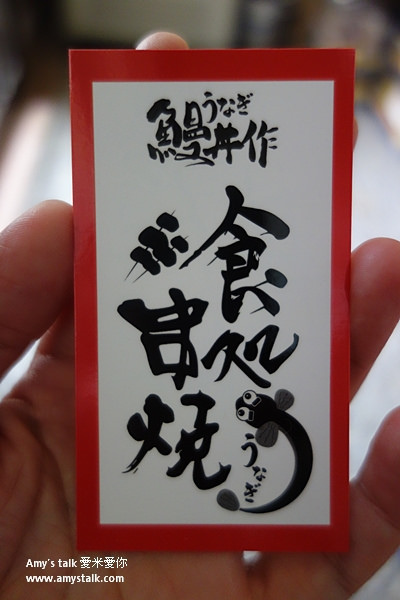 うなぎ
鰻丼作
食処
串焼
うなぎ
Amy's talk 愛米愛你
www.amystalk.com